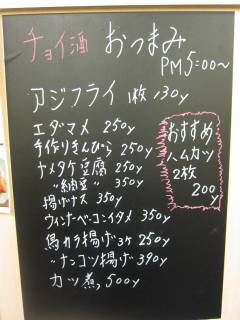 チョイ酒 おつまみ
PM5:00〜
アジフライ 1枚 130y
エダマメ 250y
手作りきんぴら 250y
ナメタケ豆腐 250y
〃納豆〃 350y
揚げナス 350y
ウィンナーベーコンイタメ 350y
鳥カラ揚げ3ケ 250y
〃ナンコツ揚げ 390y
カツ煮 500y
おすすめ
ハムカツ
2枚
200
y